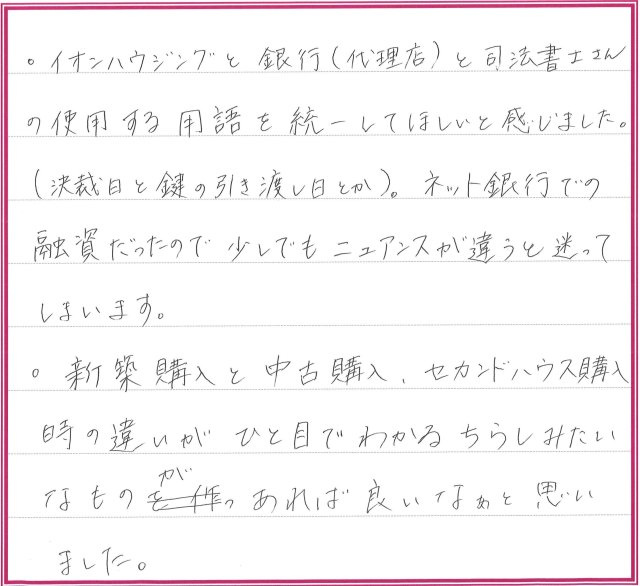 。イオンハウジングと銀行(代理店)と司法書士さん
の使用する用語を統一してほしいと感じました。
(決裁日と鍵の引き渡し日とか)。ネット銀行での
融資だったので少しでもニュアンスが違うと迷って
しまいます。
。新築購入と中古購入、セカンドハウス購入
時の違いがひと目でわかるちらしみたい
なものがあれば良いなぁと思い
ました。